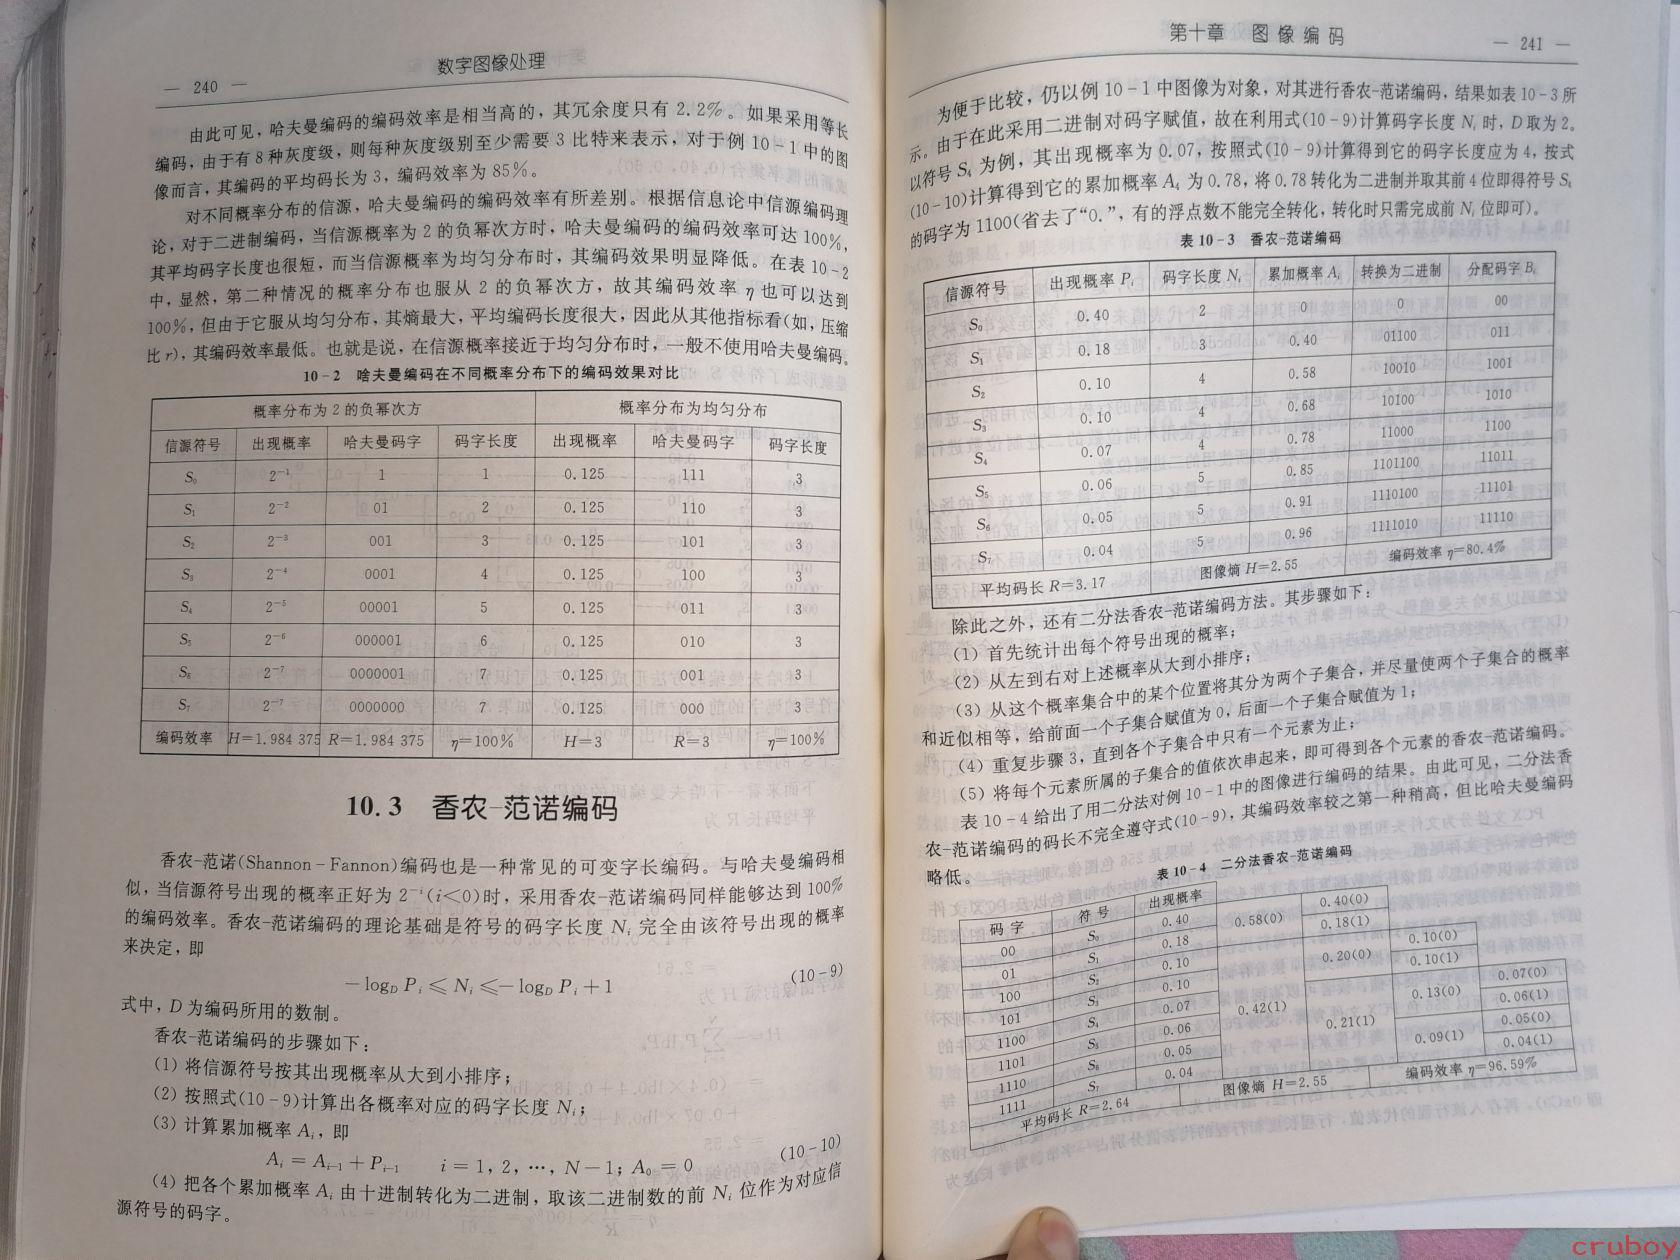 — 240 —
数字图像处理
由此可见，哈夫曼编码的编码效率是相当高的，其冗余度只有 2.2%。如果采用等长
编码，由于有 8 种灰度级，则每种灰度级别至少需要 3 比特来表示，对于例 10-1 中的图
像而言，其编码的平均码长为 3，编码效率为 85%。
对不同概率分布的信源，哈夫曼编码的编码效率有所差别。根据信息论中信源编码理
论，对于二进制编码，当信源概率为 2 的负幂次方时，哈夫曼编码的编码效率可达 100%，
其平均码字长度也很短，而当信源概率为均匀分布时，其编码效果明显降低。在表 10-2
中，显然，第二种情况的概率分布也服从 2 的负幂次方，故其编码效率 η 也可以达到
100%，但由于它服从均匀分布，其熵最大，平均编码长度很大，因此从其他指标看(如，压缩
比 r)，其编码效率最低。也就是说，在信源概率接近于均匀分布时，一般不使用哈夫曼编码。
10-2 啥夫曼编码在不同概率分布下的编码效果对比
概率分布为 2 的负幂次方 概率分布为均匀分布
信源符号 出现概率 哈夫曼码字 码字长度 出现概率 哈夫曼码字 码字长度
S₀ 2⁻¹ 1 1 0.125 111 3
S₁ 2⁻² 01 2 0.125 110 3
S₂ 2⁻³ 001 3 0.125 101 3
S₃ 2⁻⁴ 0001 4 0.125 100 3
S₄ 2⁻⁵ 00001 5 0.125 011 3
S₅ 2⁻⁶ 000001 6 0.125 010 3
S₆ 2⁻⁷ 0000001 7 0.125 001 3
S₇ 2⁻⁷ 0000000 7 0.125 000 3
编码效率 H=1.984 375 R=1.984 375 η=100% H=3 R=3 η=100%
10.3 香农-范诺编码
香农-范诺(Shannon-Fannon)编码也是一种常见的可变字长编码。与哈夫曼编码相
似，当信源符号出现的概率正好为 2⁻ⁱ(i<0)时，采用香农-范诺编码同样能够达到 100%
的编码效率。香农-范诺编码的理论基础是符号的码字长度 Nᵢ 完全由该符号出现的概率
来决定，即
−log_D Pᵢ ≤ Nᵢ ≤ −log_D Pᵢ + 1 (10-9)
式中，D 为编码所用的数制。
香农-范诺编码的步骤如下：
(1) 将信源符号按其出现概率从大到小排序；
(2) 按照式(10-9)计算出各概率对应的码字长度 Nᵢ；
(3) 计算累加概率 Aᵢ，即
Aᵢ = Aᵢ₋₁ + Pᵢ₋₁ i = 1, 2, …, N−1; A₀ = 0 (10-10)
(4) 把各个累加概率 Aᵢ 由十进制转化为二进制，取该二进制数的前 Nᵢ 位作为对应信
源符号的码字。
第十章 图像编码
— 241 —
为便于比较，仍以例 10-1 中图像为对象，对其进行香农-范诺编码，结果如表 10-3 所
示。由于在此采用二进制对码字赋值，故在利用式(10-9)计算码字长度 Nᵢ 时，D 取为 2。
以符号 S₄ 为例，其出现概率为 0.07，按照式(10-9)计算得到它的码字长度应为 4，按式
(10-10)计算得到它的累加概率 A₄ 为 0.78，将 0.78 转化为二进制并取其前 4 位即得符号 S₄
的码字为 1100(省去了“0.”，有的浮点数不能完全转化，转化时只需完成前 Nᵢ 位即可)。
表 10-3 香农-范诺编码
信源符号 出现概率 Pᵢ 码字长度 Nᵢ 累加概率 Aᵢ 转换为二进制 分配码字 Bᵢ
S₀ 0.40 2 0 0 00
S₁ 0.18 3 0.40 01100 011
S₂ 0.10 4 0.58 10010 1001
S₃ 0.10 4 0.68 10100 1010
S₄ 0.07 4 0.78 11000 1100
S₅ 0.06 5 0.85 1101100 11011
S₆ 0.05 5 0.91 1110100 11101
S₇ 0.04 5 0.96 1111010 11110
平均码长 R=3.17 图像熵 H=2.55 编码效率 η=80.4%
除此之外，还有二分法香农-范诺编码方法。其步骤如下：
(1) 首先统计出每个符号出现的概率；
(2) 从左到右对上述概率从大到小排序；
(3) 从这个概率集合中的某个位置将其分为两个子集合，并尽量使两个子集合的概率
和近似相等，给前面一个子集合赋值为 0，后面一个子集合赋值为 1；
(4) 重复步骤 3，直到各个子集合中只有一个元素为止；
(5) 将每个元素所属的子集合的值依次串起来，即可得到各个元素的香农-范诺编码。
表 10-4 给出了用二分法对例 10-1 中的图像进行编码的结果。由此可见，二分法香
农-范诺编码的码长不完全遵守式(10-9)，其编码效率较之第一种稍高，但比哈夫曼编码
略低。
表 10-4 二分法香农-范诺编码
码字 符号 出现概率
00 S₀ 0.40 0.58(0) 0.40(0)
01 S₁ 0.18 0.18(1)
100 S₂ 0.10 0.42(1) 0.20(0) 0.10(0)
101 S₃ 0.10 0.10(1)
1100 S₄ 0.07 0.21(1) 0.13(0) 0.07(0)
1101 S₅ 0.06 0.06(1)
1110 S₆ 0.05 0.09(1) 0.05(0)
1111 S₇ 0.04 0.04(1)
平均码长 R=2.64 图像熵 H=2.55 编码效率 η=96.59%
cruboy